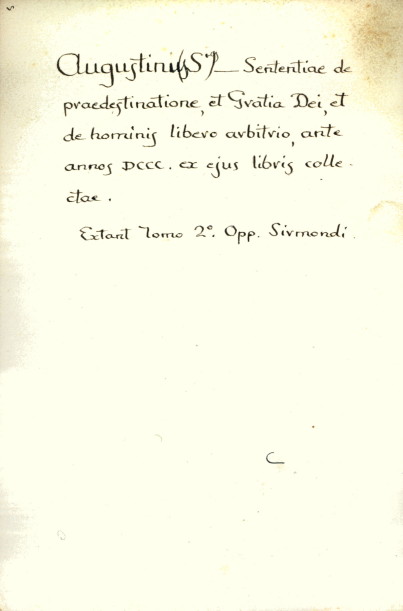 Augustinus (S.s) — Sententiae de
praedestinatione, et Gratia Dei, et
de hominis libero arbitrio, ante
annos DCCC. ex ejus libris colle-
ctae.
Extant Tomo 2º. Opp. Sirmondi.